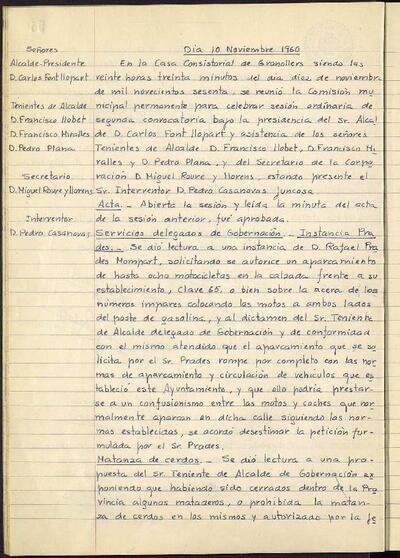 Señores
Alcalde-Presidente
D. Carlos Font Llopart
Tenientes de Alcalde
D. Francisco Llobet
D. Francisco Miralles
D. Pedro Plana
Secretario
D. Miguel Roure y Llorens
Interventor
D. Pedro Casanovas
Día 10 Noviembre 1960
En la Casa Consistorial de Granollers siendo las
veinte horas treinta minutos del día diez de noviembre
de mil novecientos sesenta, se reunió la Comisión mu
nicipal permanente para celebrar sesión ordinaria de
segunda convocatoria bajo la presidencia del Sr. Alcal
de D. Carlos Font Llopart y asistencia de los señores
Tenientes de Alcalde D. Francisco Llobet, D. Francisco Mi
ralles y D. Pedro Plana, y del Secretario de la Corpo
ración D. Miguel Roure y Llorens, estando presente el
Sr. Interventor D. Pedro Casanovas Juncosa.
Acta.- Abierta la sesión y leída la minuta del acta
de la sesión anterior, fué aprobada.
Servicios delegados de Gobernación.- Instancia Pra
des.- Se dió lectura a una instancia de D. Rafael Pra
des Mompart, solicitando se autorice un aparcamiento
de hasta ocho motocicletas en la calzada frente a su
establecimiento, Clavé 65, o bien sobre la acera de los
números impares colocando las motos a ambos lados
del poste de gasolina, y al dictamen del Sr. Teniente
de Alcalde delegado de Gobernación y de conformidad
con el mismo atendido que el aparcamiento que se so
licita por el Sr. Prades rompe por completo con las nor
mas de aparcamiento y circulación de vehículos que es
tableció este Ayuntamiento, y que ello podría prestar-
se a un confusionismo entre las motos y coches que nor
malmente aparcan en dicha calle siguiendo las nor-
mas establecidas, se acordó desestimar la petición for-
mulada por el Sr. Prades.
Matanza de cerdos.- Se dió lectura a una pro-
puesta del Sr. Teniente de Alcalde de Gobernación ex
poniendo que habiendo sido cerrados dentro de la Pro
vincia algunos mataderos, o prohibida la matan-
za de cerdos en los mismos y autorizado por la